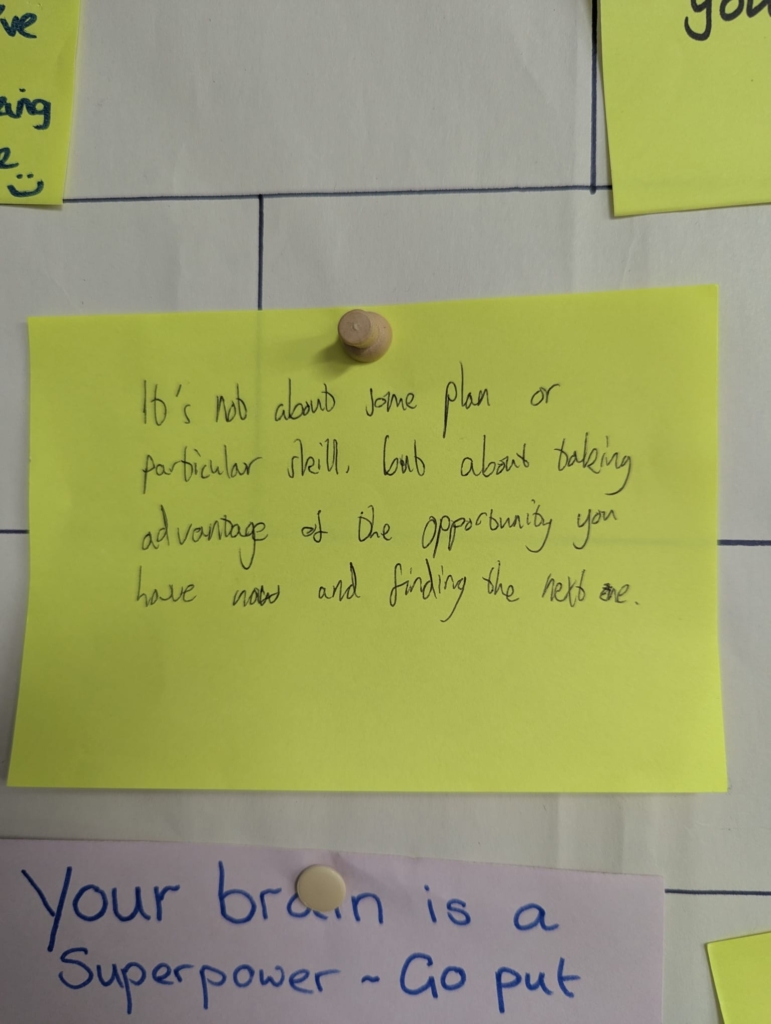 've
you
aing
e :)
It's not about some plan or
particular skill, but about taking
advantage of the opportunity you
have now and finding the next one.
Your brain is a
Superpower ~ Go put